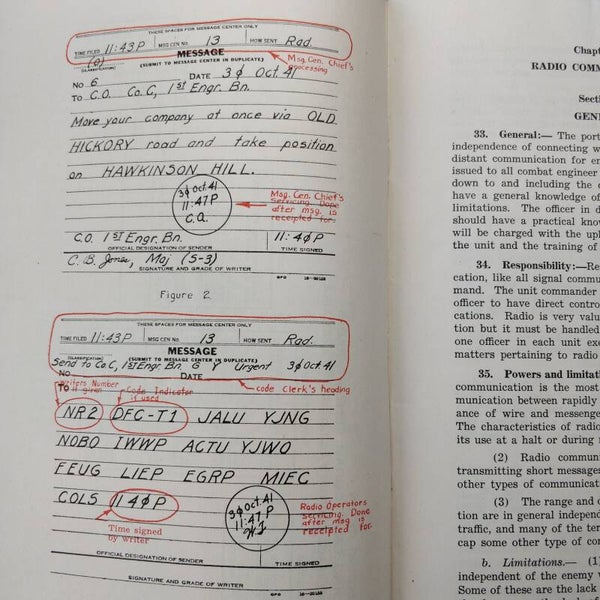 THESE SPACES FOR MESSAGE CENTER ONLY
TIME FILED 11:43 P MSG CEN No. 13 HOW SENT Rad.
MESSAGE
(CLASSIFICATION) (SUBMIT TO MESSAGE CENTER IN DUPLICATE)
Msg. Cen. Chief's
processing
No 6 DATE 3Ø Oct. 41
To C.O. Co. C, 1ST Engr. Bn.
Move your company at once via OLD
HICKORY road and take position
on HAWKINSON HILL.
3Ø Oct. 41
11:47 P
C.Q.
Msg. Cen. Chief's
Servicing. Done
after msg. is
receipted for.
C.O. 1ST Engr. Bn. 11:4Ø P
OFFICIAL DESIGNATION OF SENDER TIME SIGNED
C. B. Jones, Maj (S-3)
SIGNATURE AND GRADE OF WRITER
Figure 2
THESE SPACES FOR MESSAGE CENTER ONLY
TIME FILED 11:43 P MSG CEN No. HOW SENT Rad.
MESSAGE
(CLASSIFICATION) (SUBMIT TO MESSAGE CENTER IN DUPLICATE)
Send to Co. C, 1ST Engr. Bn. G Y Urgent 3Ø Oct 41
No DATE
To
Writers Number
if given
Code Indicator
if used
code Clerk's heading
NR2 DFC-T1 JALU YJNG
NOBO IWWP ACTU YJWO
FEUG LIEP EGRP MIEC
COLS 114Ø P
Time signed
by writer
3Ø Oct. 41
11:47 P
Radio Operators
Servicing. Done
after msg is
receipted for.
OFFICIAL DESIGNATION OF SENDER TIME SIGNED
SIGNATURE AND GRADE OF WRITER
Chapt
RADIO COMM
Section
GENE
33. General:— The port
independence of connecting w
distant communication for en
issued to all combat engineer
down to and including the c
have a general knowledge of
limitations. The officer in d
should have a practical know
will be charged with the uph
the unit and the training of
34. Responsibility:—Re
cation, like all signal commu
mand. The unit commander
officer to have direct control
cations. Radio is very valua
tion but it must be handled
one officer in each unit exe
matters pertaining to radio
35. Powers and limitati
communication is the most
munication between rapidly
ance of wire and messenge
The characteristics of radio
its use at a halt or during m
(2) Radio commun
transmitting short messages
other types of communicati
(3) The range and c
tion are in general independ
traffic, and many of the ter
cap some other type of com
b. Limitations.— (1)
independent of the enemy
Some of these are the lack